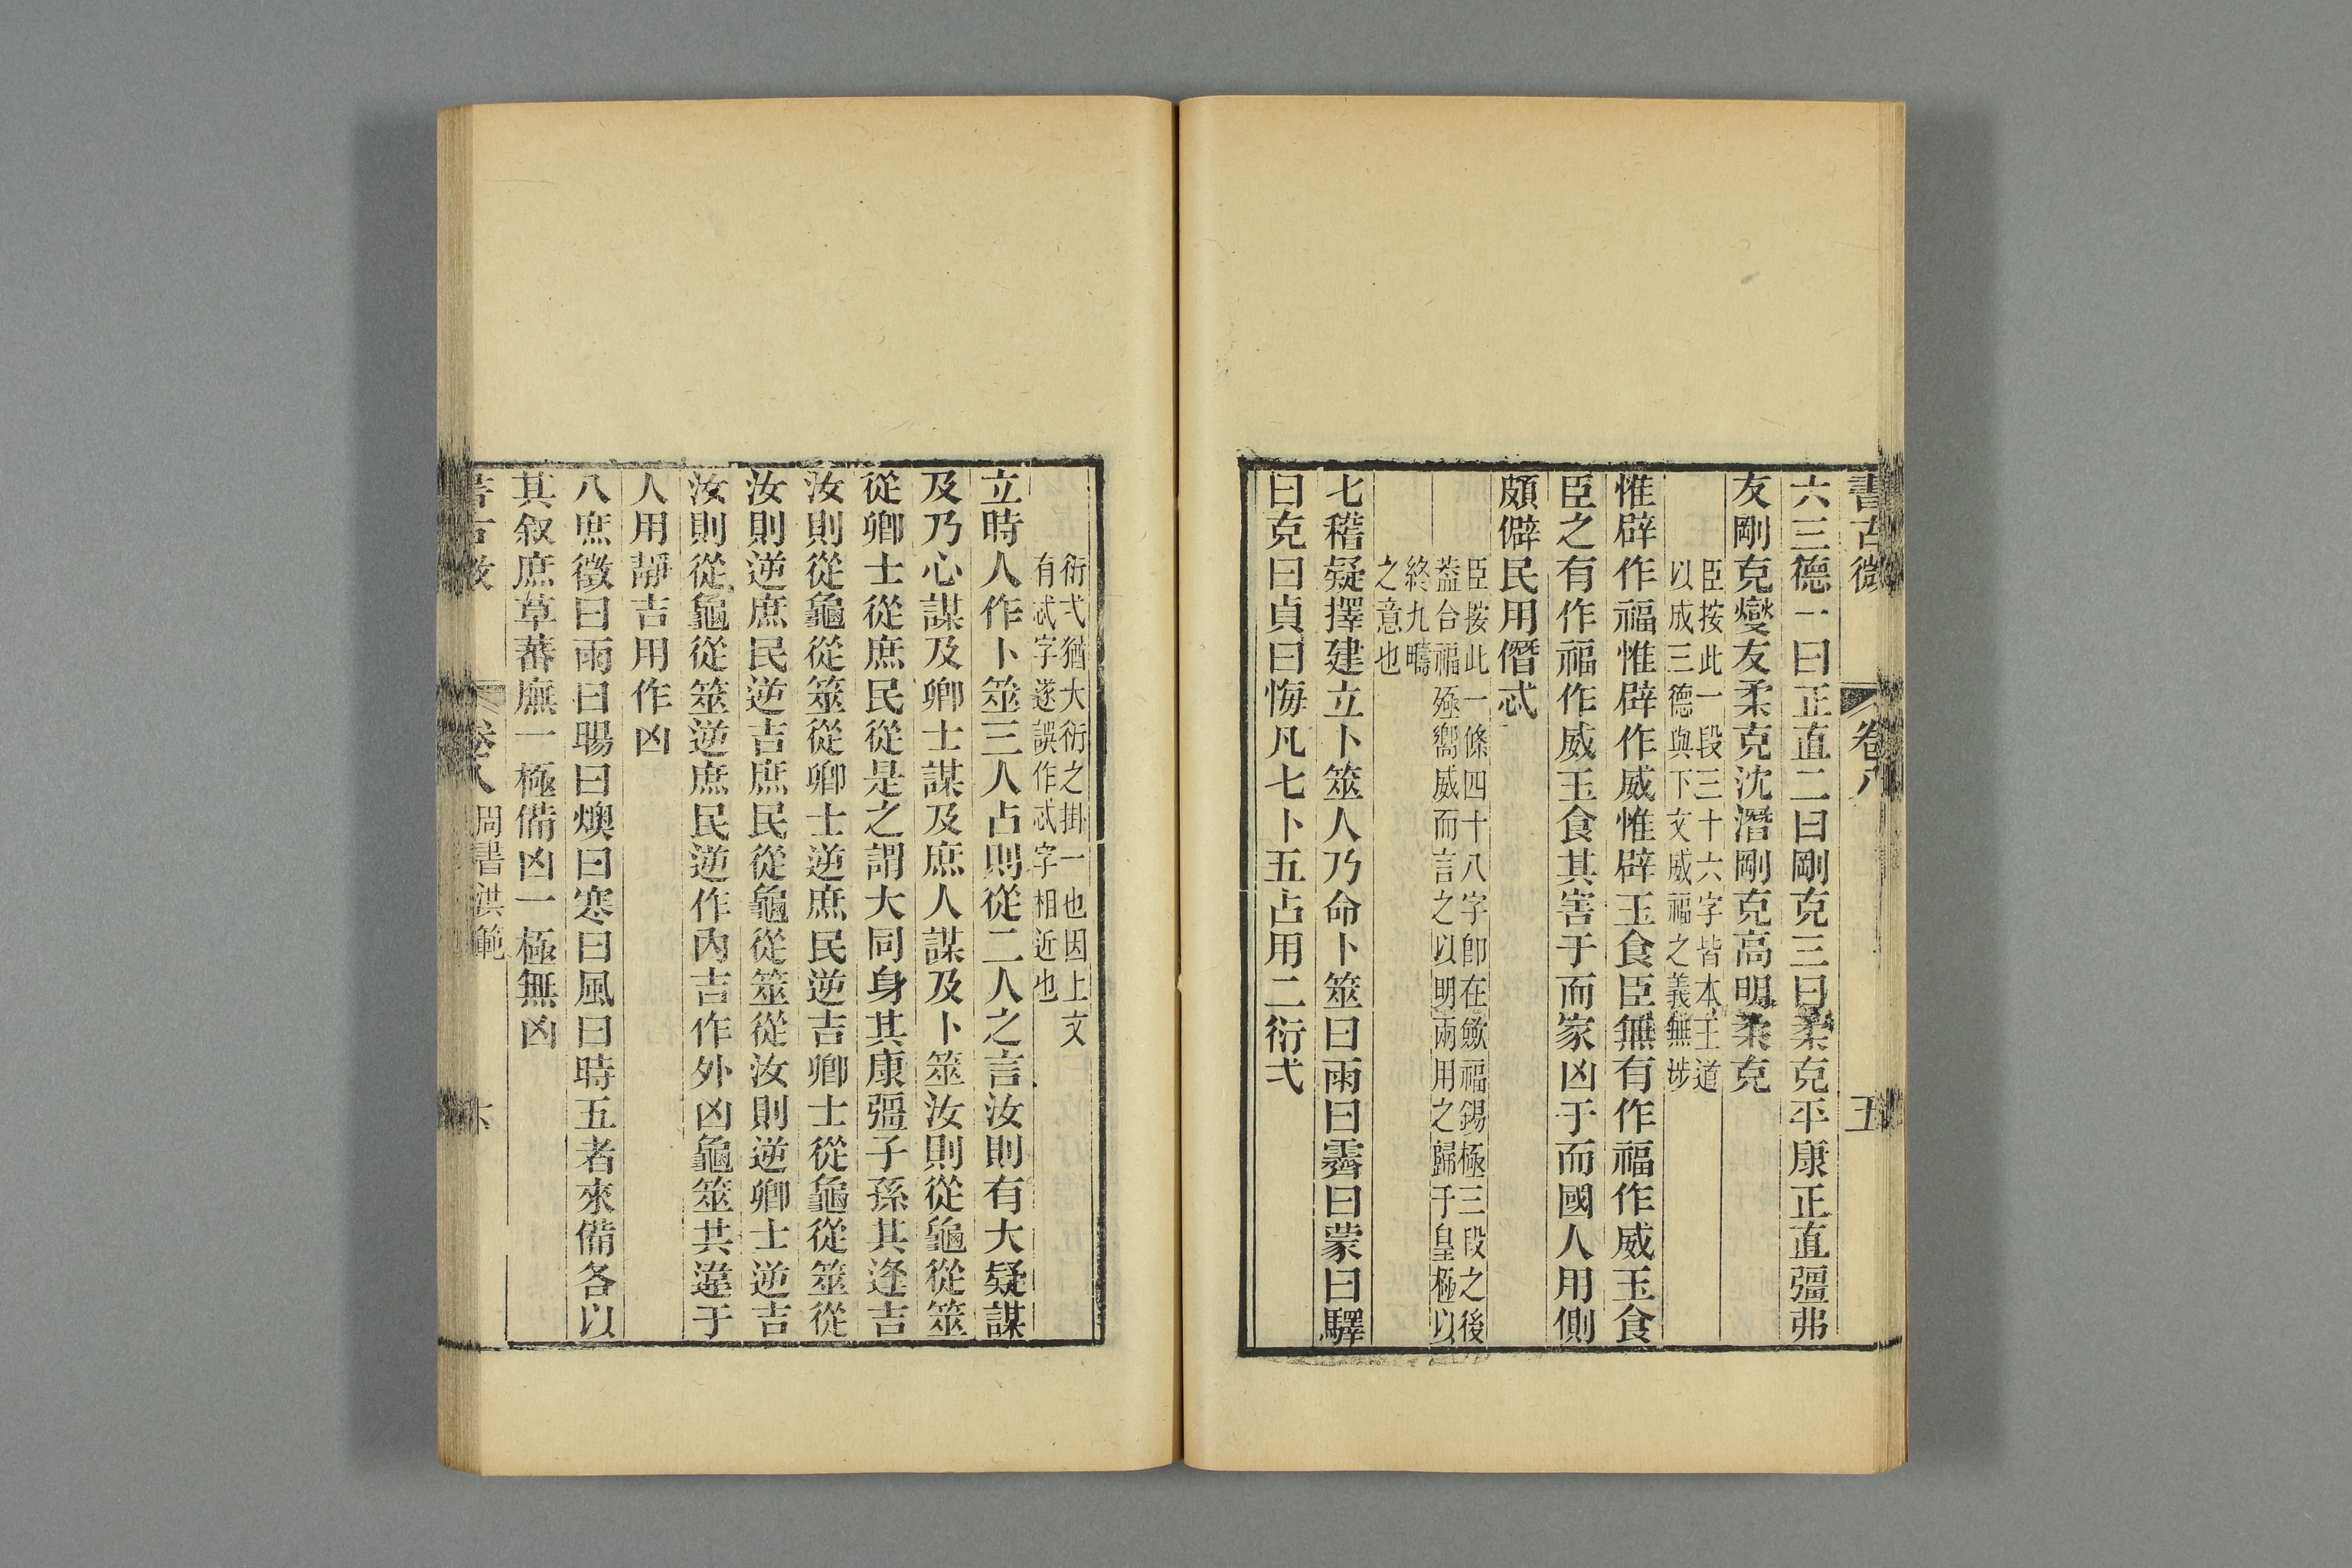 書古微 卷八 五
六三德一曰正直二曰剛克三曰柔克平康正直彊弗
友剛克燮友柔克沈潛剛克高明柔克
臣按此一段三十六字皆本王道
以成三德與下文威福之義無涉
惟辟作福惟辟作威惟辟玉食臣無有作福作威玉食
臣之有作福作威玉食其害于而家凶于而國人用側
頗僻民用僭忒
臣按此一條四十八字卽在斂福錫極三段之後
葢合福殛嚮威而言之以明兩用之歸于皇極以
終九疇
之意也
七稽疑擇建立卜筮人乃命卜筮曰雨曰霽曰蒙曰驛
曰克曰貞曰悔凡七卜五占用二衍弍
衍弍猶大衍之掛一也因上文
有忒字遂誤作忒字相近也
立時人作卜筮三人占則從二人之言汝則有大疑謀
及乃心謀及卿士謀及庶人謀及卜筮汝則從龜從筮
從卿士從庶民從是之謂大同身其康彊子孫其逢吉
汝則從龜從筮從卿士逆庶民逆吉卿士從龜從筮從
汝則逆庶民逆吉庶民從龜從筮從汝則逆卿士逆吉
汝則從龜從筮逆庶民逆作內吉作外凶龜筮共違于
人用靜吉用作凶
八庶徵曰雨曰暘曰燠曰寒曰風曰時五者來備各以
其叙庶草蕃廡一極備凶一極無凶
書古微 卷八 周書洪範 六